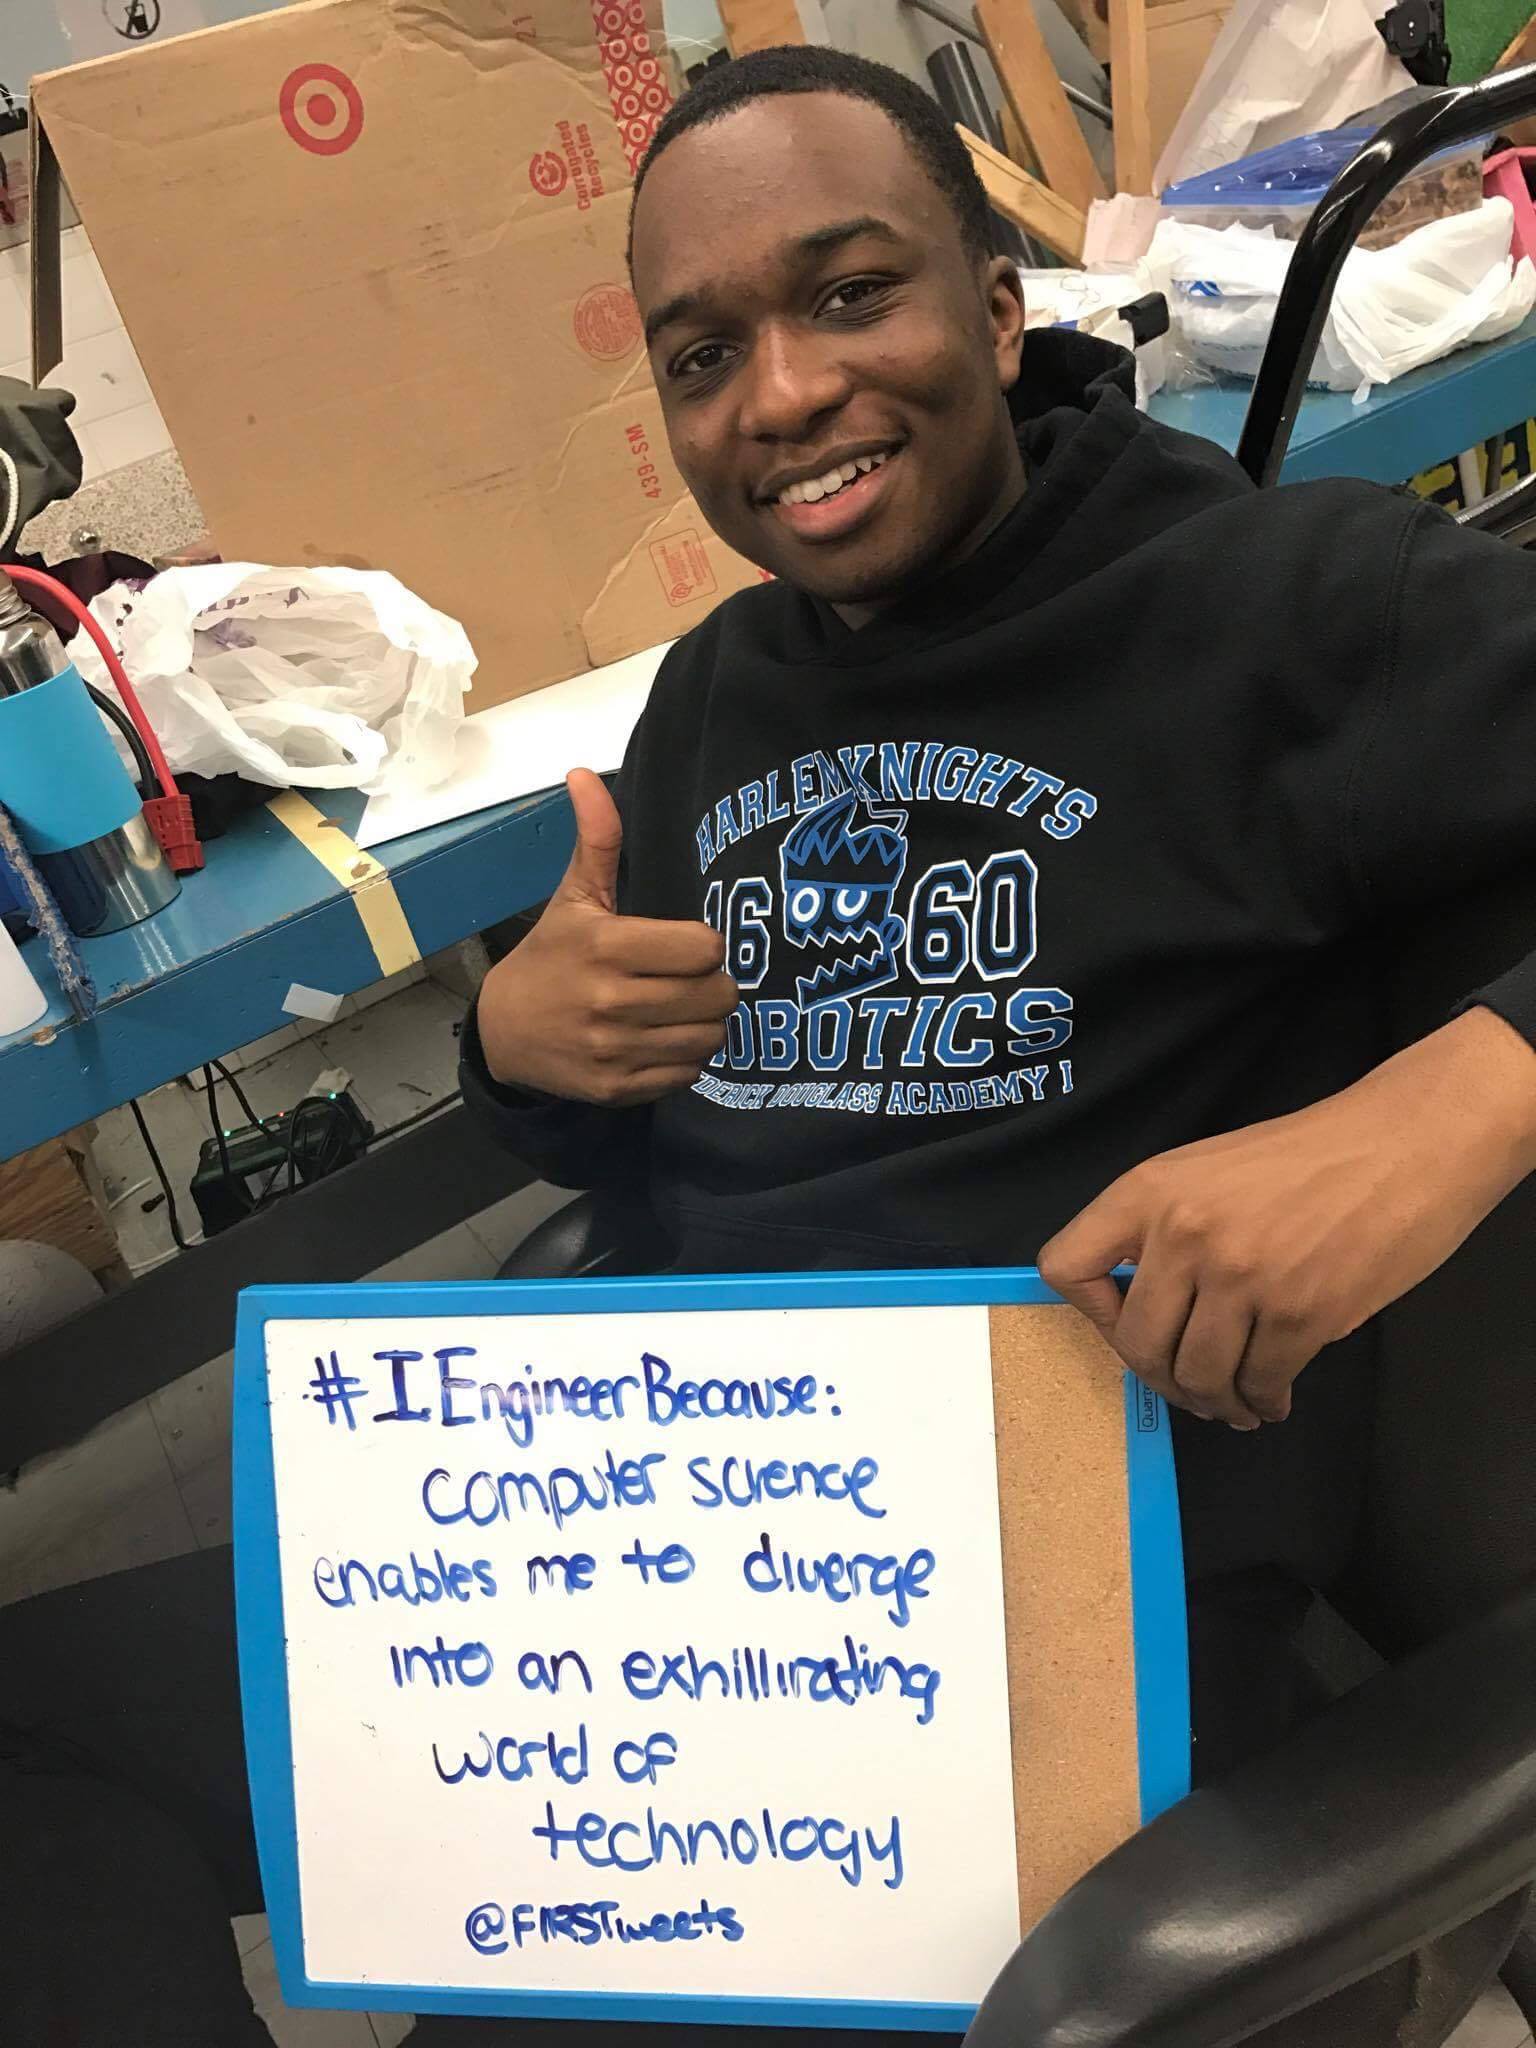 21
Corrugated
Recycles
439-SM
HARLEM KNIGHTS
16 60
OBOTICS
DERICK DOUGLASS ACADEMY I
#IEngineerBecause:
computer science
enables me to diverge
into an exhillirating
world of
technology
@FIRSTweets
Quart